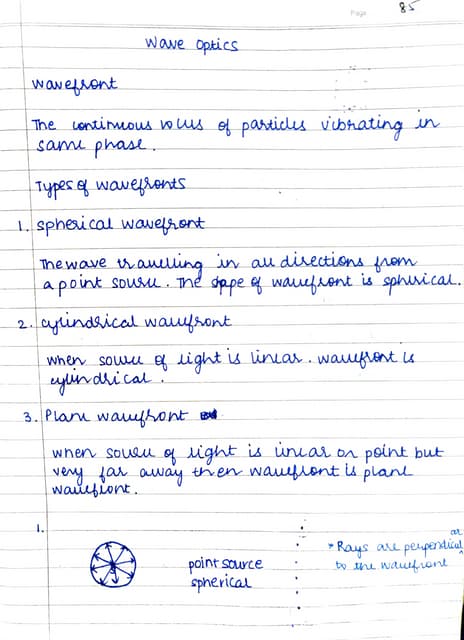 Page 85
Wave Optics
Wavefront
The continuous locus of particles vibrating in
same phase.
Types of wavefronts
1. spherical wavefront
The wave travelling in all directions from
a point source. The shape of wavefront is spherical.
2. cylindrical wavefront
when source of light is linear. wavefront is
cylindrical.
3. Plane wavefront
when source of light is linear or point but
very far away then wavefront is plane
wavefront.
1.
point source
spherical
* Rays are perpendicular
to the wavefront